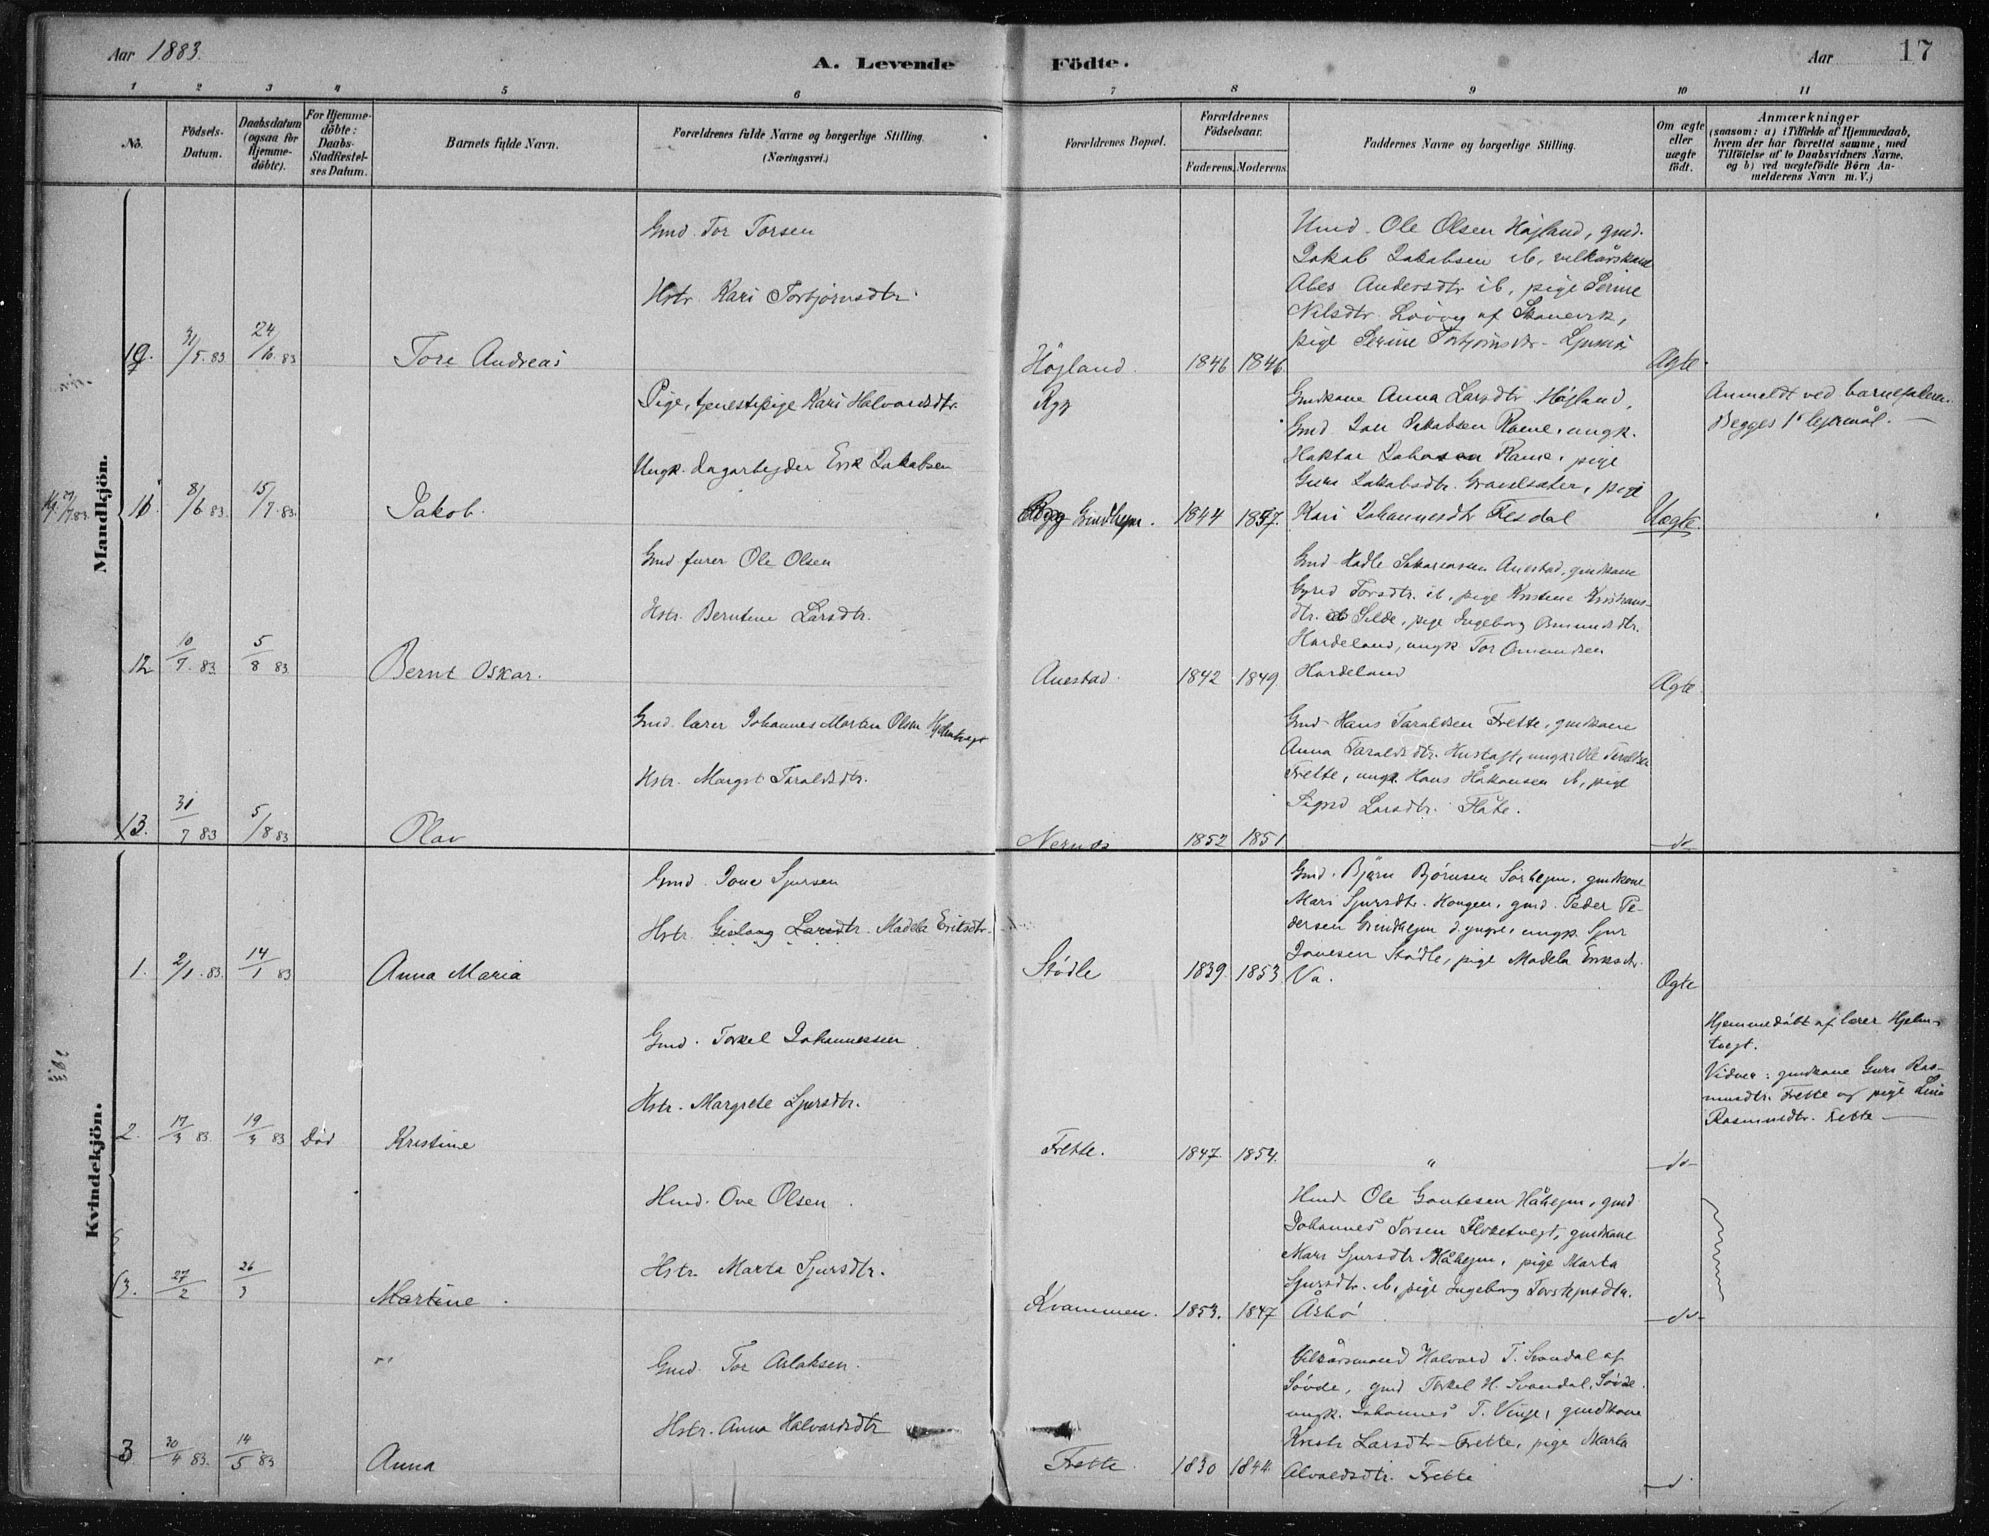 Aar 1883.
A. Levende Födte.
Aar
17
1 2 3 4 5 6 7 8 9 10 11
No.
Födsels-Datum.
Daabsdatum (ogsaa for Hjemme-döbte).
For Hjemme-döbte: Daabs-Stadfæstel-ses Datum.
Barnets fulde Navn.
Forældrenes fulde Navne og borgerlige Stilling.
(Næringsvei.)
Forældrenes Bopæl.
Forældrenes Födselsaar.
Faderens. Moderens.
Faddernes Navne og borgerlige Stilling.
Om ægte eller uægte født.
Anmærkninger
(saasom: a) i Tilfælde af Hjemmedaab,
hvem der har forrettet samme, med
Tilföielse af to Daabsvidners Navne,
og b) ved uægtefödte Börn An-
melderens Navn m. V.)
Mandkjön.
Gmd. Tor Torsen
Hstr. Kari Torbjørnsdtr.
10. 31/5.83 24/6.83 Tore Andreas
Højland. 1846 1846.
Hmd. Ole Olsen Højland, gmd.
Jakob Jakobsen ib, vilkårskone
Abes Andersdtr ib, pige Serine
Nilsdtr. af Skonevik,
pige Serine Torbjørnsdtr.
Ægte.
Pige, tjenestepige Kari Halvordsdtr.
Ungk. dagarbejder Erik Jakobsen
11. 8/6 83 15/7.83. Jakob.
Grindhejm. 1844 1857.
Gmdkone Anna Larsdtr Højland,
Gmd. Jon Jakobsen Rame, ungk.
Haktor Rame, pige
Guri Jakobsdtr. pige
Kari Johannesdtr Fesdal
Uægte.
Anmeldt ved barnefaderen.
Begges 1ste lejermål.
Gmd furer Ole Olsen
Hstr. Berntine Larsdtr.
12 10/7.83 5/8 83 Bernt Oskar.
Auestad. 1842 1849
Gmd. Hadle Auestad, gmdkone
Gyrid Torsdtr. ib, pige Kristine Kristians-
dtr. Silde, pige Ingeborg Omundsdtr.
Hardeland, ungk Tor Omundsen
Hardeland
Ægte
Gmd. lærer Johannes Morten Olsen Hjelmtvegt
Hstr. Margrt Taraldsdtr.
13. 31/7 83 5/8 83 Olav
Nernes 1852 1851
Gmd Hans Taraldsen Frette, gmdkone
Anna Taraldsdtr. Hustoft, ungk. Ole Taraldsen
Frette, ungk. Hans Håkonsen ib, pige
Sigrid Larsdtr. Flåte.
do
Kvindekjön.
Gmd. Jone Sjursen
Hstr. Larsdtr. Madela Eriksdtr.
1. 2/1.83. 14/1 83 Anna Maria
Stødle 1839. 1853
Gmd. Bjørn Bjørnsen Sørhejm, gmdkone
Mari Sjursdtr. Haugen, gmd. Peder Pe-
dersen Grindhejm d. yngre, ungk. Sjur
Jonesen Stødle, pige Madela Eriksdtr.
Va.
Ægte
Gmd. Torkel Johannessen
Hstr. Margrete Sjursdtr.
2. 17/3 83. 19/3 83 Død Kristine
Frette. 1847. 1854.
"
do
Hjemmedøbt af lærer Hjelm-
tvegt.
Vidner: gmdkone Guri Ras-
musdtr. Frette og pige Lina
Rasmusdtr. Frette
Hmd. Ove Olsen
Hstr. Marta Sjursdtr.
(3. 27/2 26/3 Martine.
Kvammen. 1853. 1847
Hmd Ole Gautesen Håhejm, gmd
Johannes Torsen Flokatvegt, gmdkone
Mari Sjursdtr Håhejm, pige Marta
Sjursdtr. ib, pige Ingeborg Torstejnsdtr.
Åsbø
do
Gmd. Tor Aslaksen.
Hstr. Anna Halvardsdtr
3 30/4 83. 14/5 83 Anna
Frette. 1830 1844.
Vilkårsmand Halvard T. Svandal af
Søvde, gmd Torkel H. Svandal, Søvde.
ungk. Johannes T. Vinje, gmdkone
Kristi Larsdtr Frette, pige Marta
Alvaldsdtr. Frette
d.